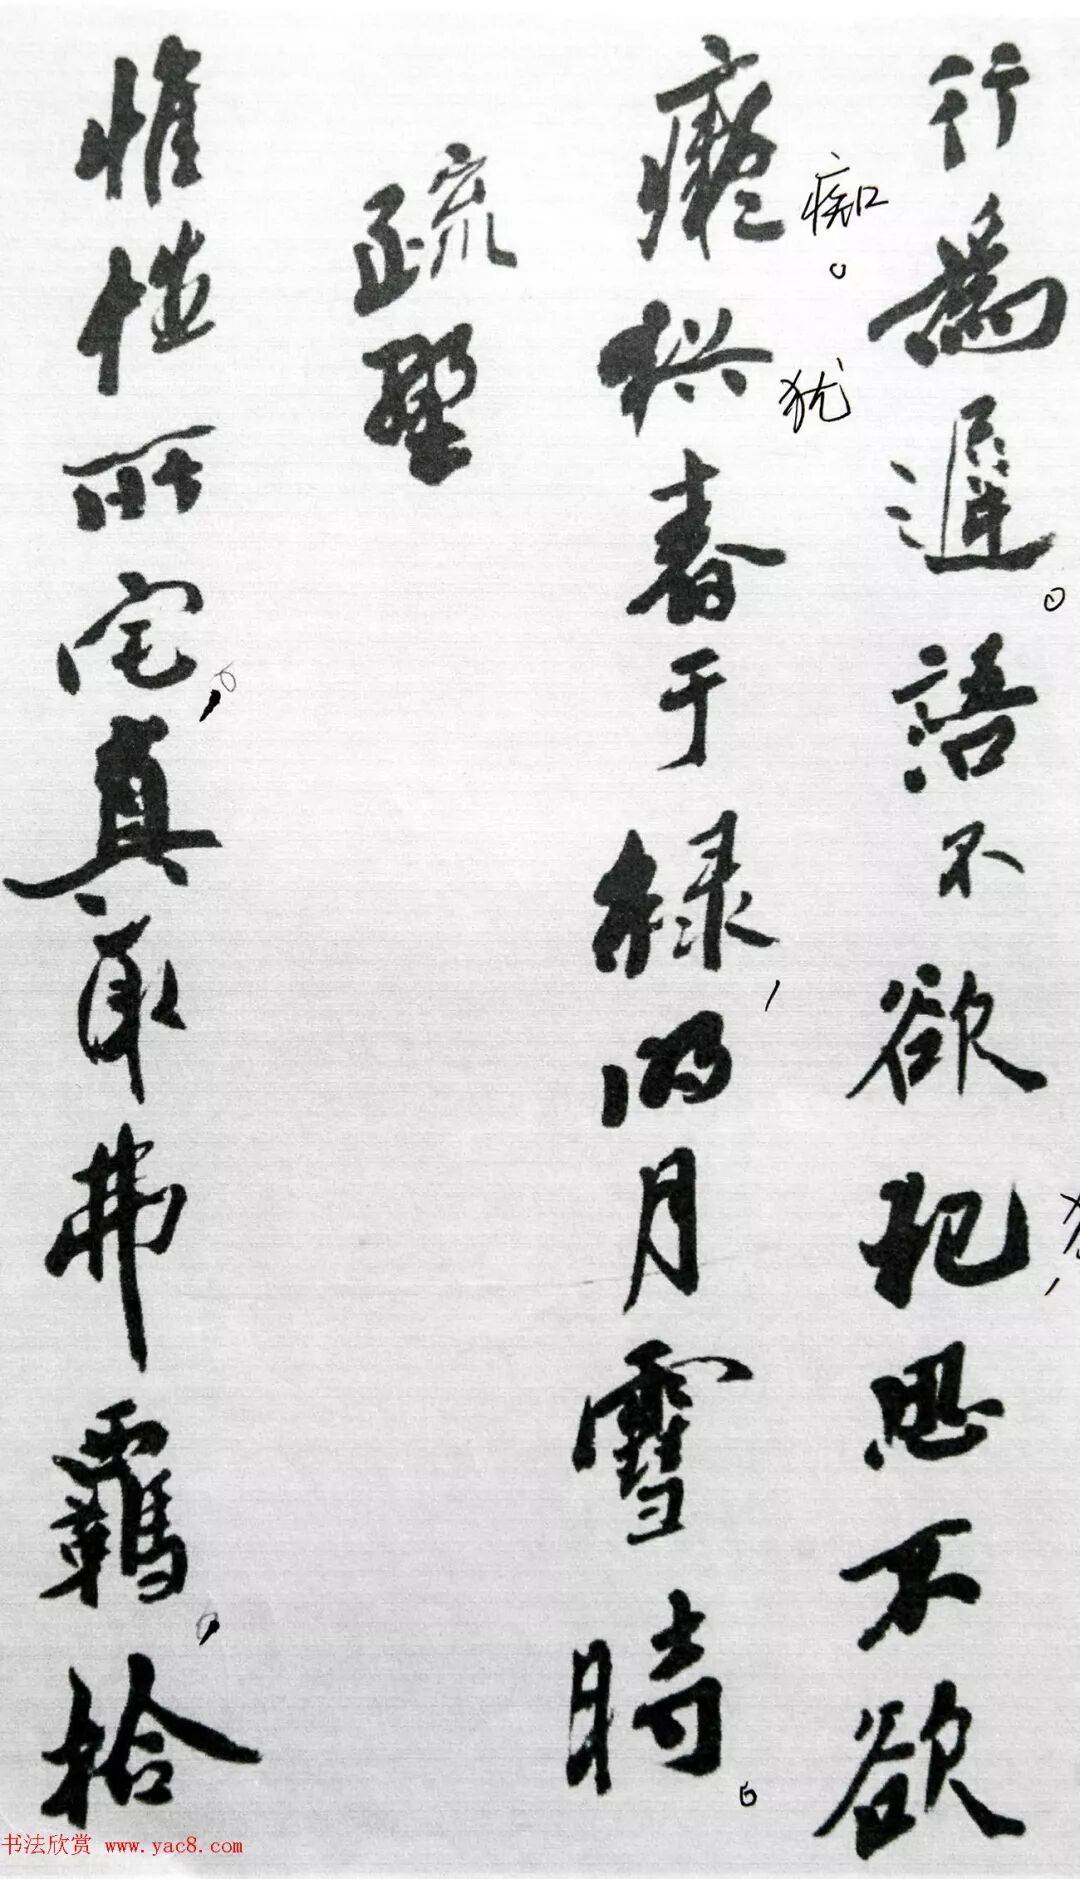 行為遲。語不欲犯思不欲
痴。
犹
癡猶春于綠,明月雪時。
疏野
惟性所宅,真取弗羈,拾
书法欣赏 www.yac8.com